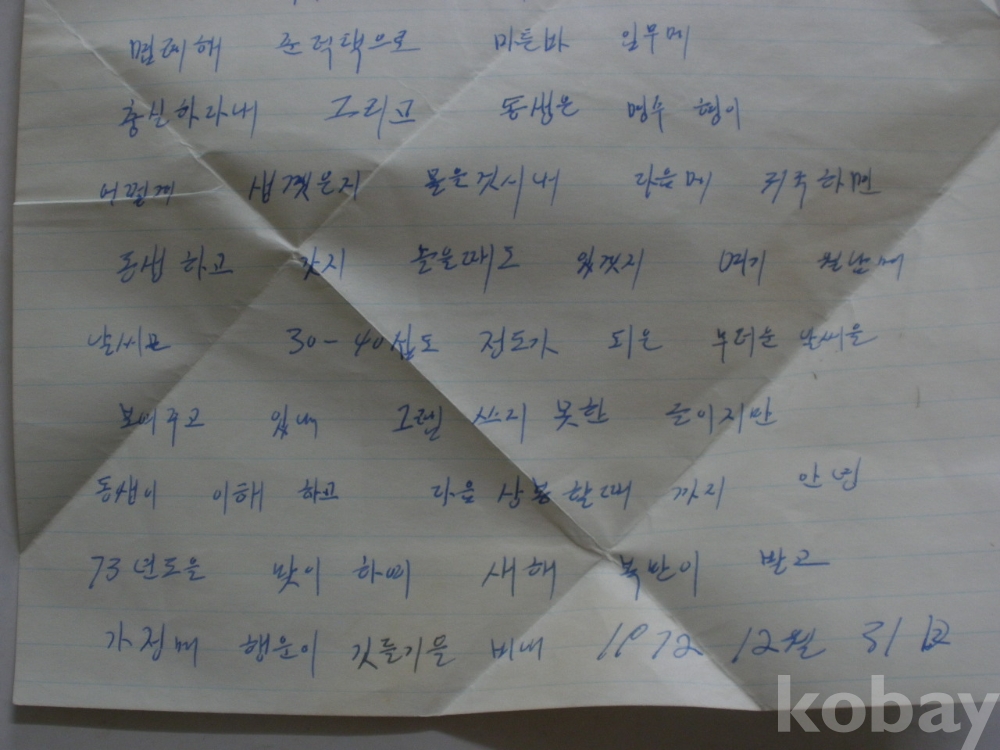 염례해 준 덕택으로 마튼바 임무에
충실하라내 그리고 동생은 명수 형이
어떻게 생겻은지 몰을것시내 다음메 귀국하면
동생 하고 갓지 놀을때도 있겟지 여기 월남에
날씨로 30-40십도 정도가 되은 무더운 날씨을
보여주고 있내 그럼 쓰지 못한 글이지만
동생이 이해 하고 다음 상봉할때 까지 안녕
73년도을 맞이 하며 새해 복만이 받고
가정에 행운이 깃들기를 비내 1972 12월 31日
kobay